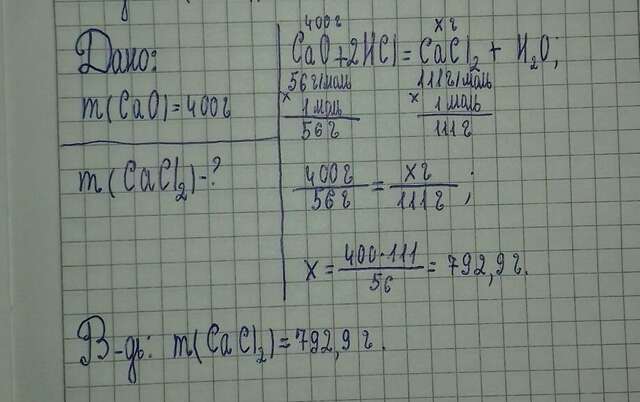 Дано:
m(CaO)=400г
m(CaCl₂)-?
400г хг
CaO+2HCl=CaCl₂+H₂O;
56г/моль 111г/моль
×1моль ×1моль
56г 111г
400г/56г=хг/111г;
х=400·111/56=792,9г.
В-дь: m(CaCl₂)=792,9г.